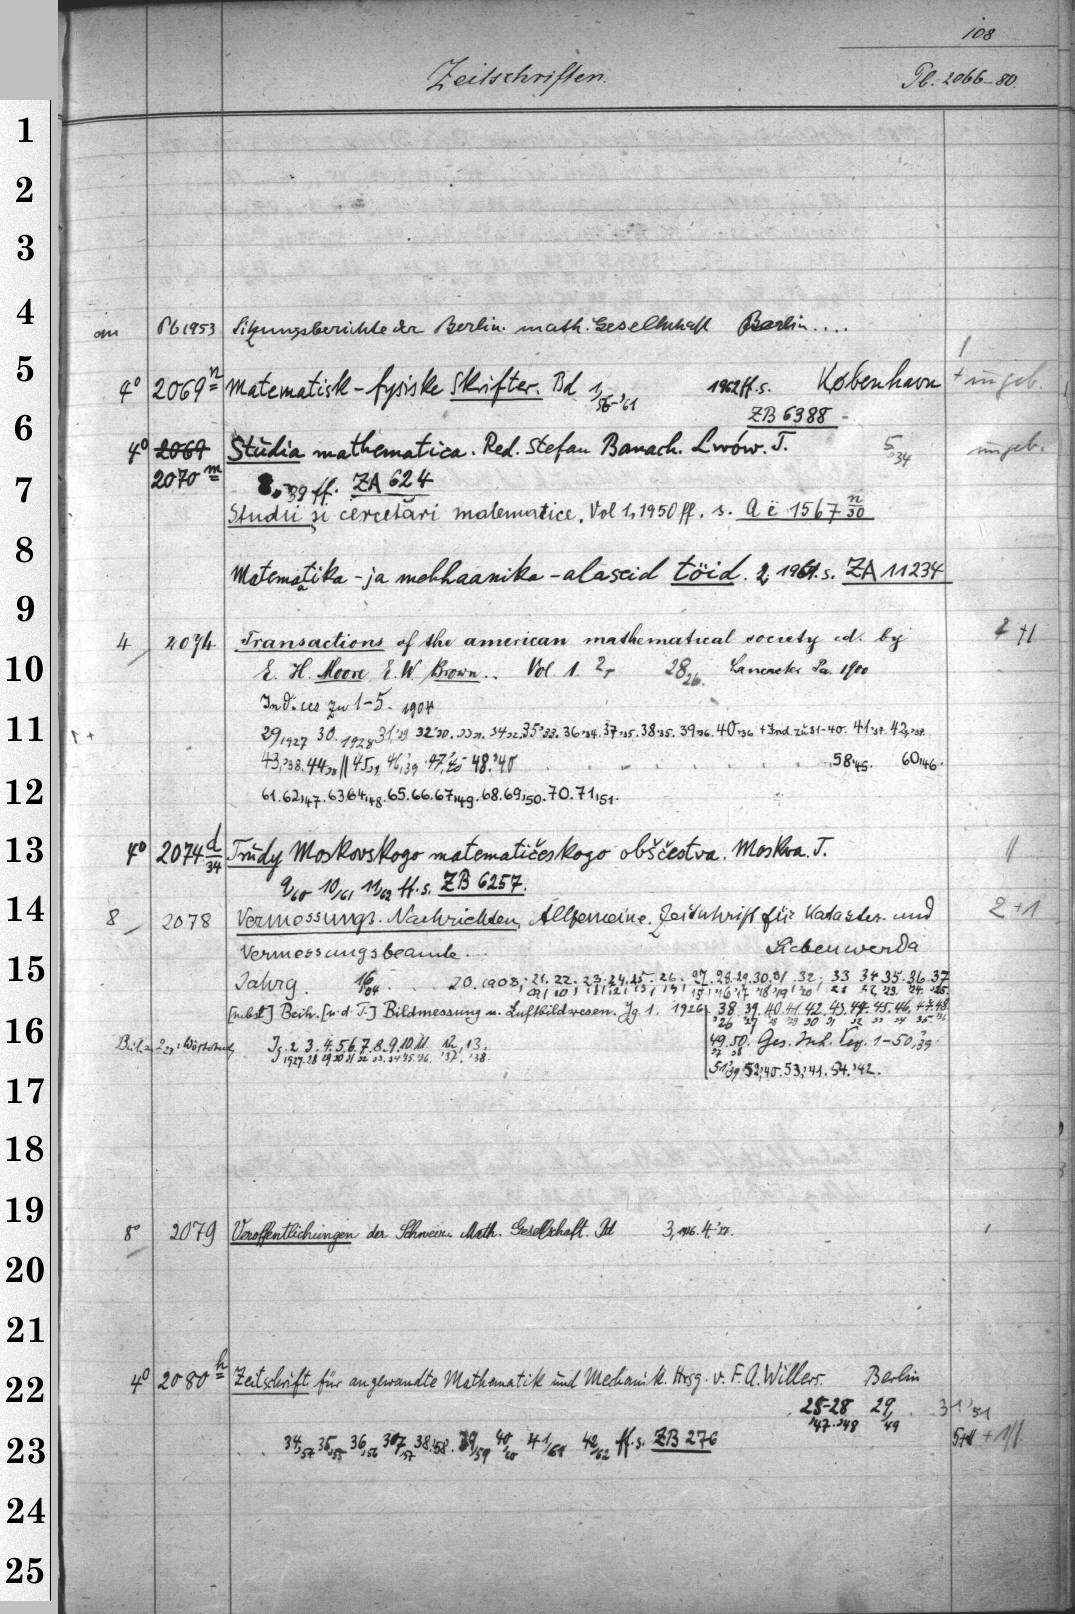 108
Zeitschriften.
Pb. 2066-80.
1
2
3
4
Pb 1953 Sitzungsberichte der Berlin. math. Gesellschaft Berlin....
5
4° 2069 n Matematisk-fysiske Skrifter. Bd 1,56-'61 1962 ff. s. København + ungeb.
6
ZB 6388
4° 2069 Studia mathematica. Red. Stefan Banach. Lwów. T. 5,34 ungeb.
7
2070 m 8,39 ff. ZA 624
Studii și cercetări matematice. Vol 1, 1950 ff. s. Aë 1567 n/50
8
Matematika- ja mehhaanika-alaseid töid. 2, 1961. s. ZA 11234
9
4 2074 Transactions of the american mathematical society ed. by 2 +1
10
E. H. Moore, E. W. Brown.. Vol 1. 2, 28,26. Lancaster Pa. 1900
Indices zu 1-5. 1904
11
29,1927 30. 1928 31,'29 32'30. 33'31. 34'32. 35'33. 36'34. 37'35. 38'35. 39'36. 40'36 + Ind. zu 31-40. 41'37. 42,'37.
43,'38. 44,38 45,39 46,39 47,'40 48.'40 58'45. 60,46.
12
61.62,47. 63.64,48. 65.66.67,49. 68.69,50. 70.71,51.
13
4° 2074 d/34 Trudy Moskovskogo matematičeskogo obščestva. Moskva. T.
9/60 10/61 11/62 ff. s. ZB 6257.
14
8 2078 Vermessungs-Nachrichten, Allgemeine. Zeitschrift für Kataster- und 2+1
Vermessungsbeamte... Liebenwerda
15
Jahrg. 16,04 20.1908; 21. 22. 23. 24. 25. 26. 27. 28. 29. 30. 31. 32. 33 34. 35. 36. 37
[nebst] Beih. [u. d. T.] Bildmessung u. Luftbildwesen. Jg. 1. 1926 38. 39. 40. 41. 42. 43. 44. 45. 46. 47. 48.
16
Jg. 2 3. 4. 5. 6. 7. 8. 9. 10. 11. 12. 13. 49. 50. Ges. Inh. Verz. 1-50,'39.
1927. 28 29 30 31 32. 33. 34 35. 36. '37. '38.
51'39 52,'40. 53,'41. 54.'42.
17
18
19
8° 2079 Veröffentlichungen der Schweiz. Math. Gesellschaft. Bd 3,1916. 4,'27.
20
21
22
4° 2080 h Zeitschrift für angewandte Mathematik und Mechanik. Hrsg. v. F. A. Willers. Berlin
25-28 29, 31,'51
'47-'48 49
23
34,54 35,55 36,56 37,57 38,58. 39/59 40/60 41/61 42/62 ff. s. ZB 276
24
25